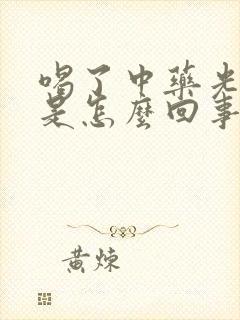 喝了中藥光
是怎麼回事
黃煉